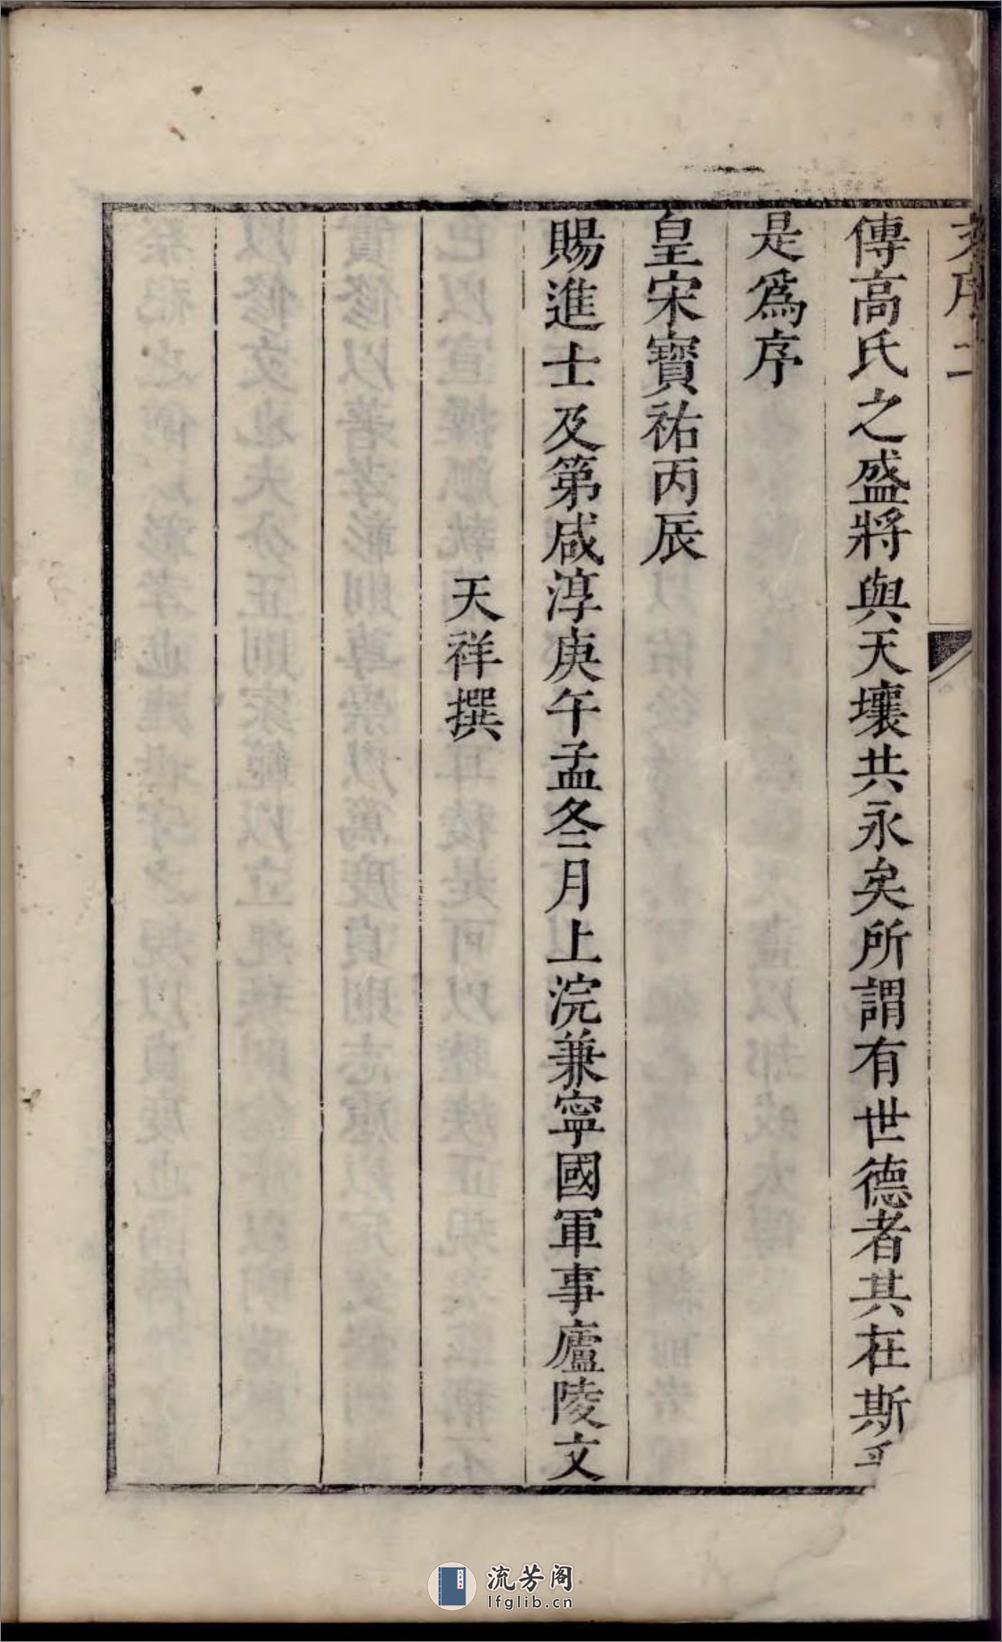 文序 二
傳高氏之盛將與天壤共永矣所謂有世德者其在斯乎
是為序
皇宋寶祐丙辰
賜進士及第咸淳庚午孟冬二月上浣兼寧國軍事廬陵文
天祥撰
流芳阁
lfglib.cn